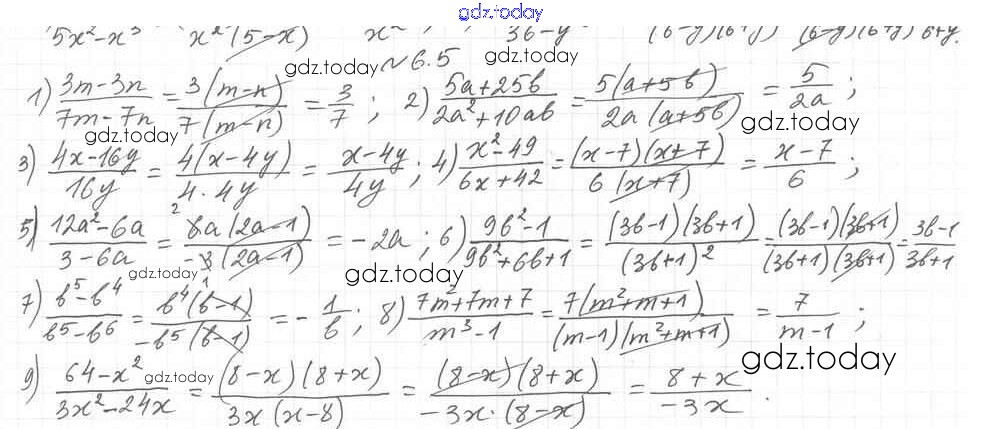 gdz.today
5x²-x³ x²(5-x) x² 3b-y (b-y)(b+y) (b-y)(b+y) b+y.
gdz.today №6.5
1) (3m-3n)/(7m-7n) = 3(m-n)/7(m-n) = 3/7; 2) (5a+25b)/(2a²+10ab) = 5(a+5b)/2a(a+5b) = 5/2a;
gdz.today gdz.today gdz.today
3) (4x-16y)/16y = 4(x-4y)/4·4y = (x-4y)/4y; 4) (x²-49)/(6x+42) = (x-7)(x+7)/6(x+7) = (x-7)/6;
5) (12a²-6a)/(3-6a) = ²6a(2a-1)/-3(2a-1) = -2a; 6) (9b²-1)/(9b²+6b+1) = (3b-1)(3b+1)/(3b+1)² = (3b-1)(3b+1)/(3b+1)(3b+1) = (3b-1)/(3b+1)
gdz.today gdz.today
7) (b⁵-b⁴)/(b⁵-b⁶) = b⁴(b-1)/-b⁵(b-1) = -1/b; 8) (7m²+7m+7)/(m³-1) = 7(m²+m+1)/(m-1)(m²+m+1) = 7/(m-1);
gdz.today gdz.today
9) (64-x²)/(3x²-24x) = (8-x)(8+x)/3x(x-8) = (8-x)(8+x)/-3x·(8-x) = (8+x)/-3x.